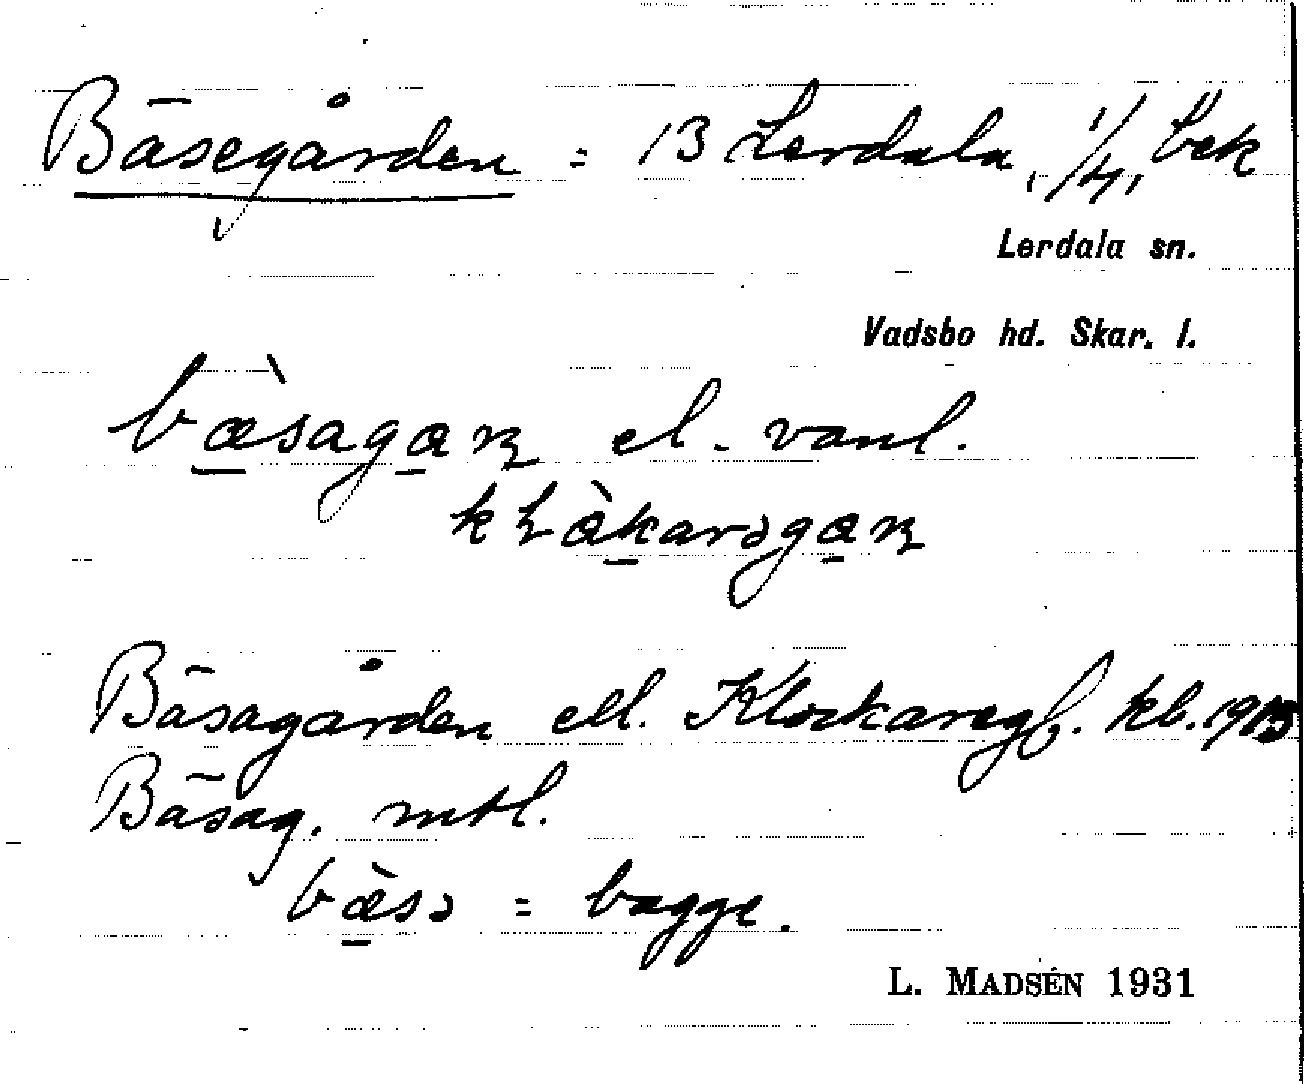 Bäsegården = 13 Lerdala, 1/4, bek
Lerdala sn.
Vadsbo hd. Skar. l.
bæ̀sagaꞃ el. vanl.
kḷàkarəgaꞃ
Bäsagården ell. Klockaregd. kb. 1913
Bäsag. mtl.
bæ̀sə = bagge.
L. MADSÉN 1931